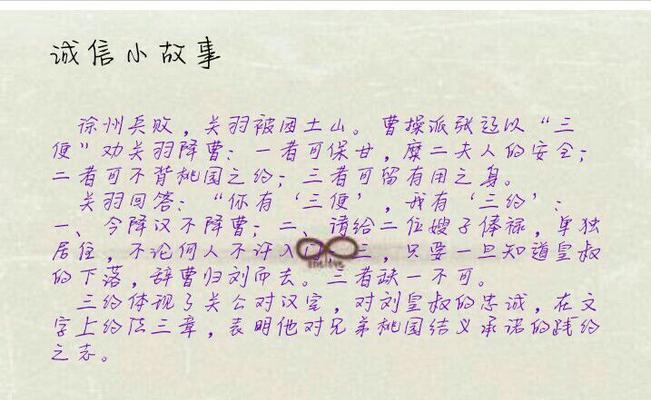 诚信小故事
徐州兵败，关羽被困土山。曹操派张辽以“三
便”劝关羽降曹：一者可保甘，糜二夫人的安全；
二者可不背桃园之约；三者可留有用之身。
关羽回答：“你有‘三便’，我有‘三约’：
一、今降汉不降曹；二、请给二位嫂子俸禄，单独
居住，不论何人不许入门；三，只要一旦知道皇叔
的下落，辞曹归刘而去。三者缺一不可。
三约体现了关公对汉室，对刘皇叔的忠诚，在文
字上约法三章，表明他对兄弟桃园结义承诺的践约
之志。